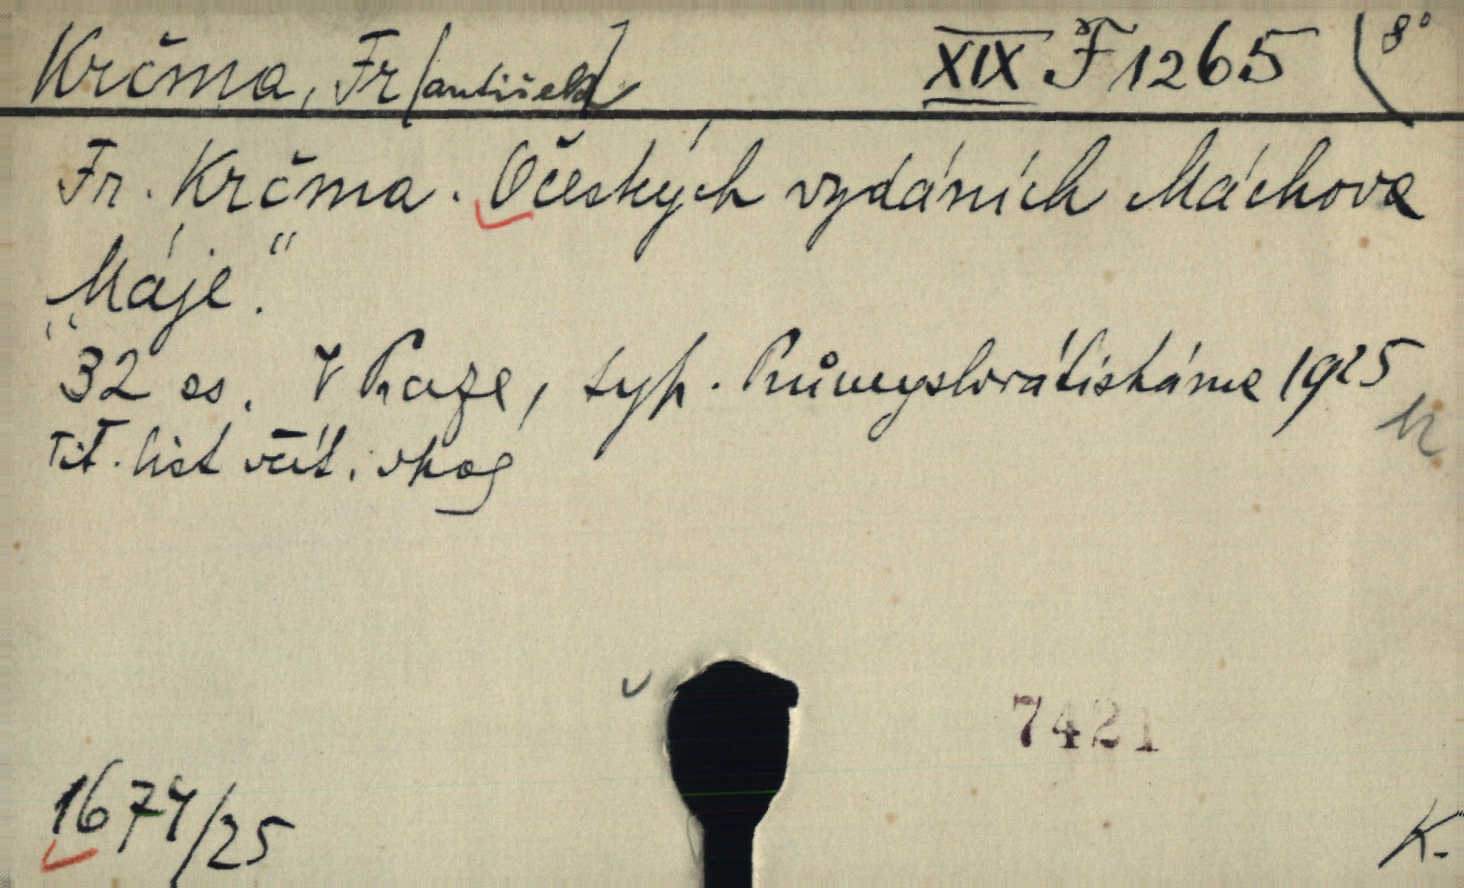 Krčma, Fr[antišek] XIX F 1265 8°
Fr. Krčma. O českých vydáních Máchova
„Máje."
32 ss. V Praze, typ. Průmyslová tiskárna 1925
Tit. list
7421
1674/25
K.